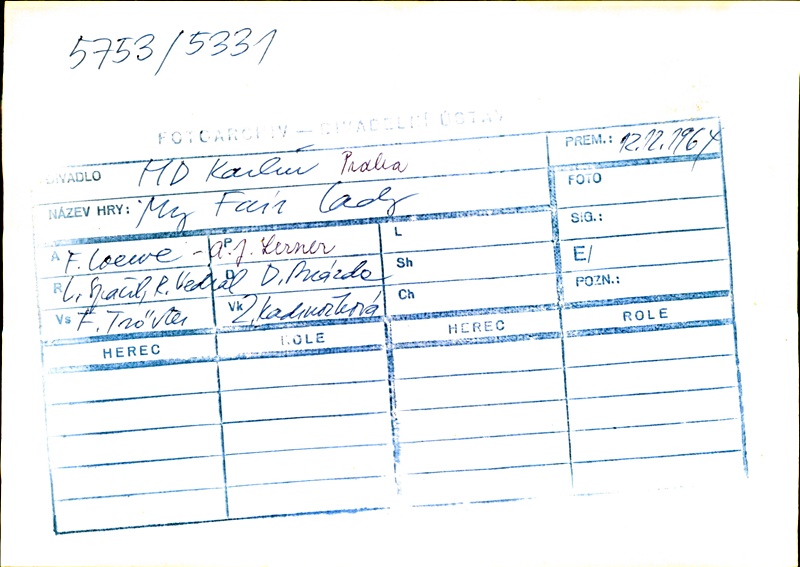 5753/5331
FOTOARCHIV – DIVADELNÍ ÚSTAV
DIVADLO MD Karlín Praha
PREM.: 12.12.1964
NÁZEV HRY: My Fair Lady
FOTO
SIG.:
E/
POZN.:
A F. Loewe - P A. J. Lerner
L
R L. Spáčil, R. Vedral D
Sh
Vs F. Tröster Vk
Ch
HEREC ROLE HEREC ROLE